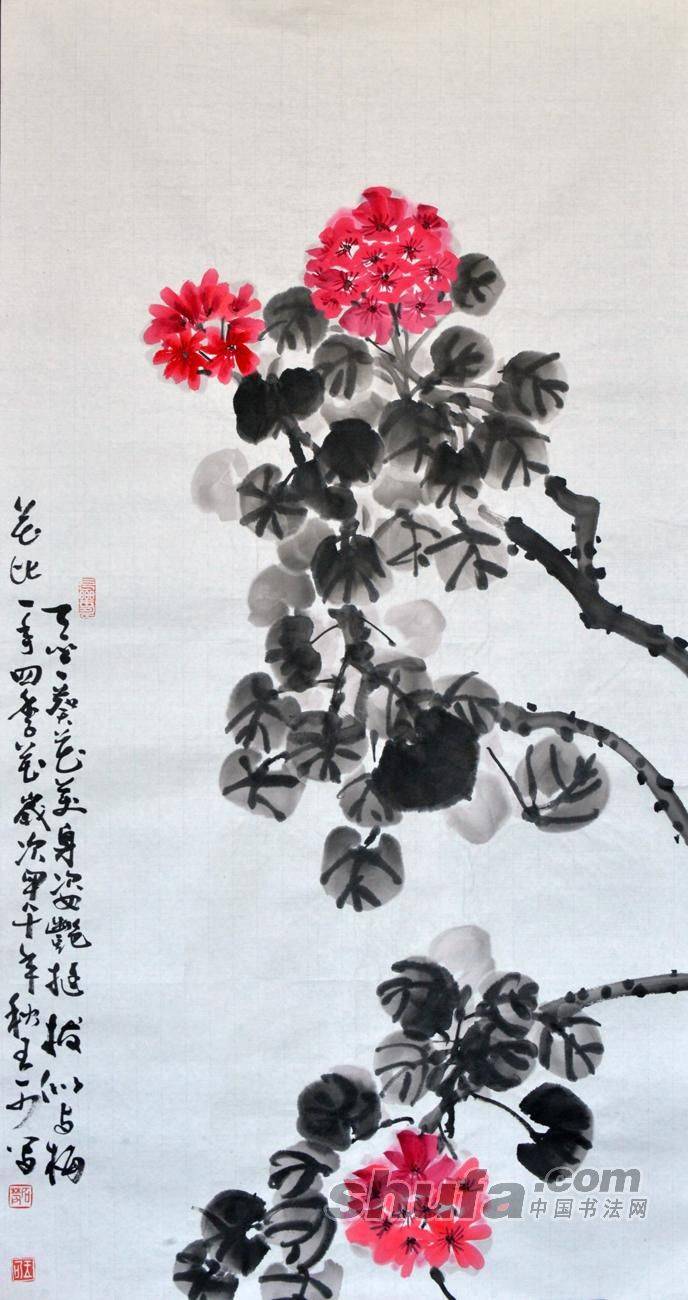 天竺葵花美身姿艷挺拔似与梅
花比一年四季花歲次甲午年秋王一写
shufa.com
中国书法网